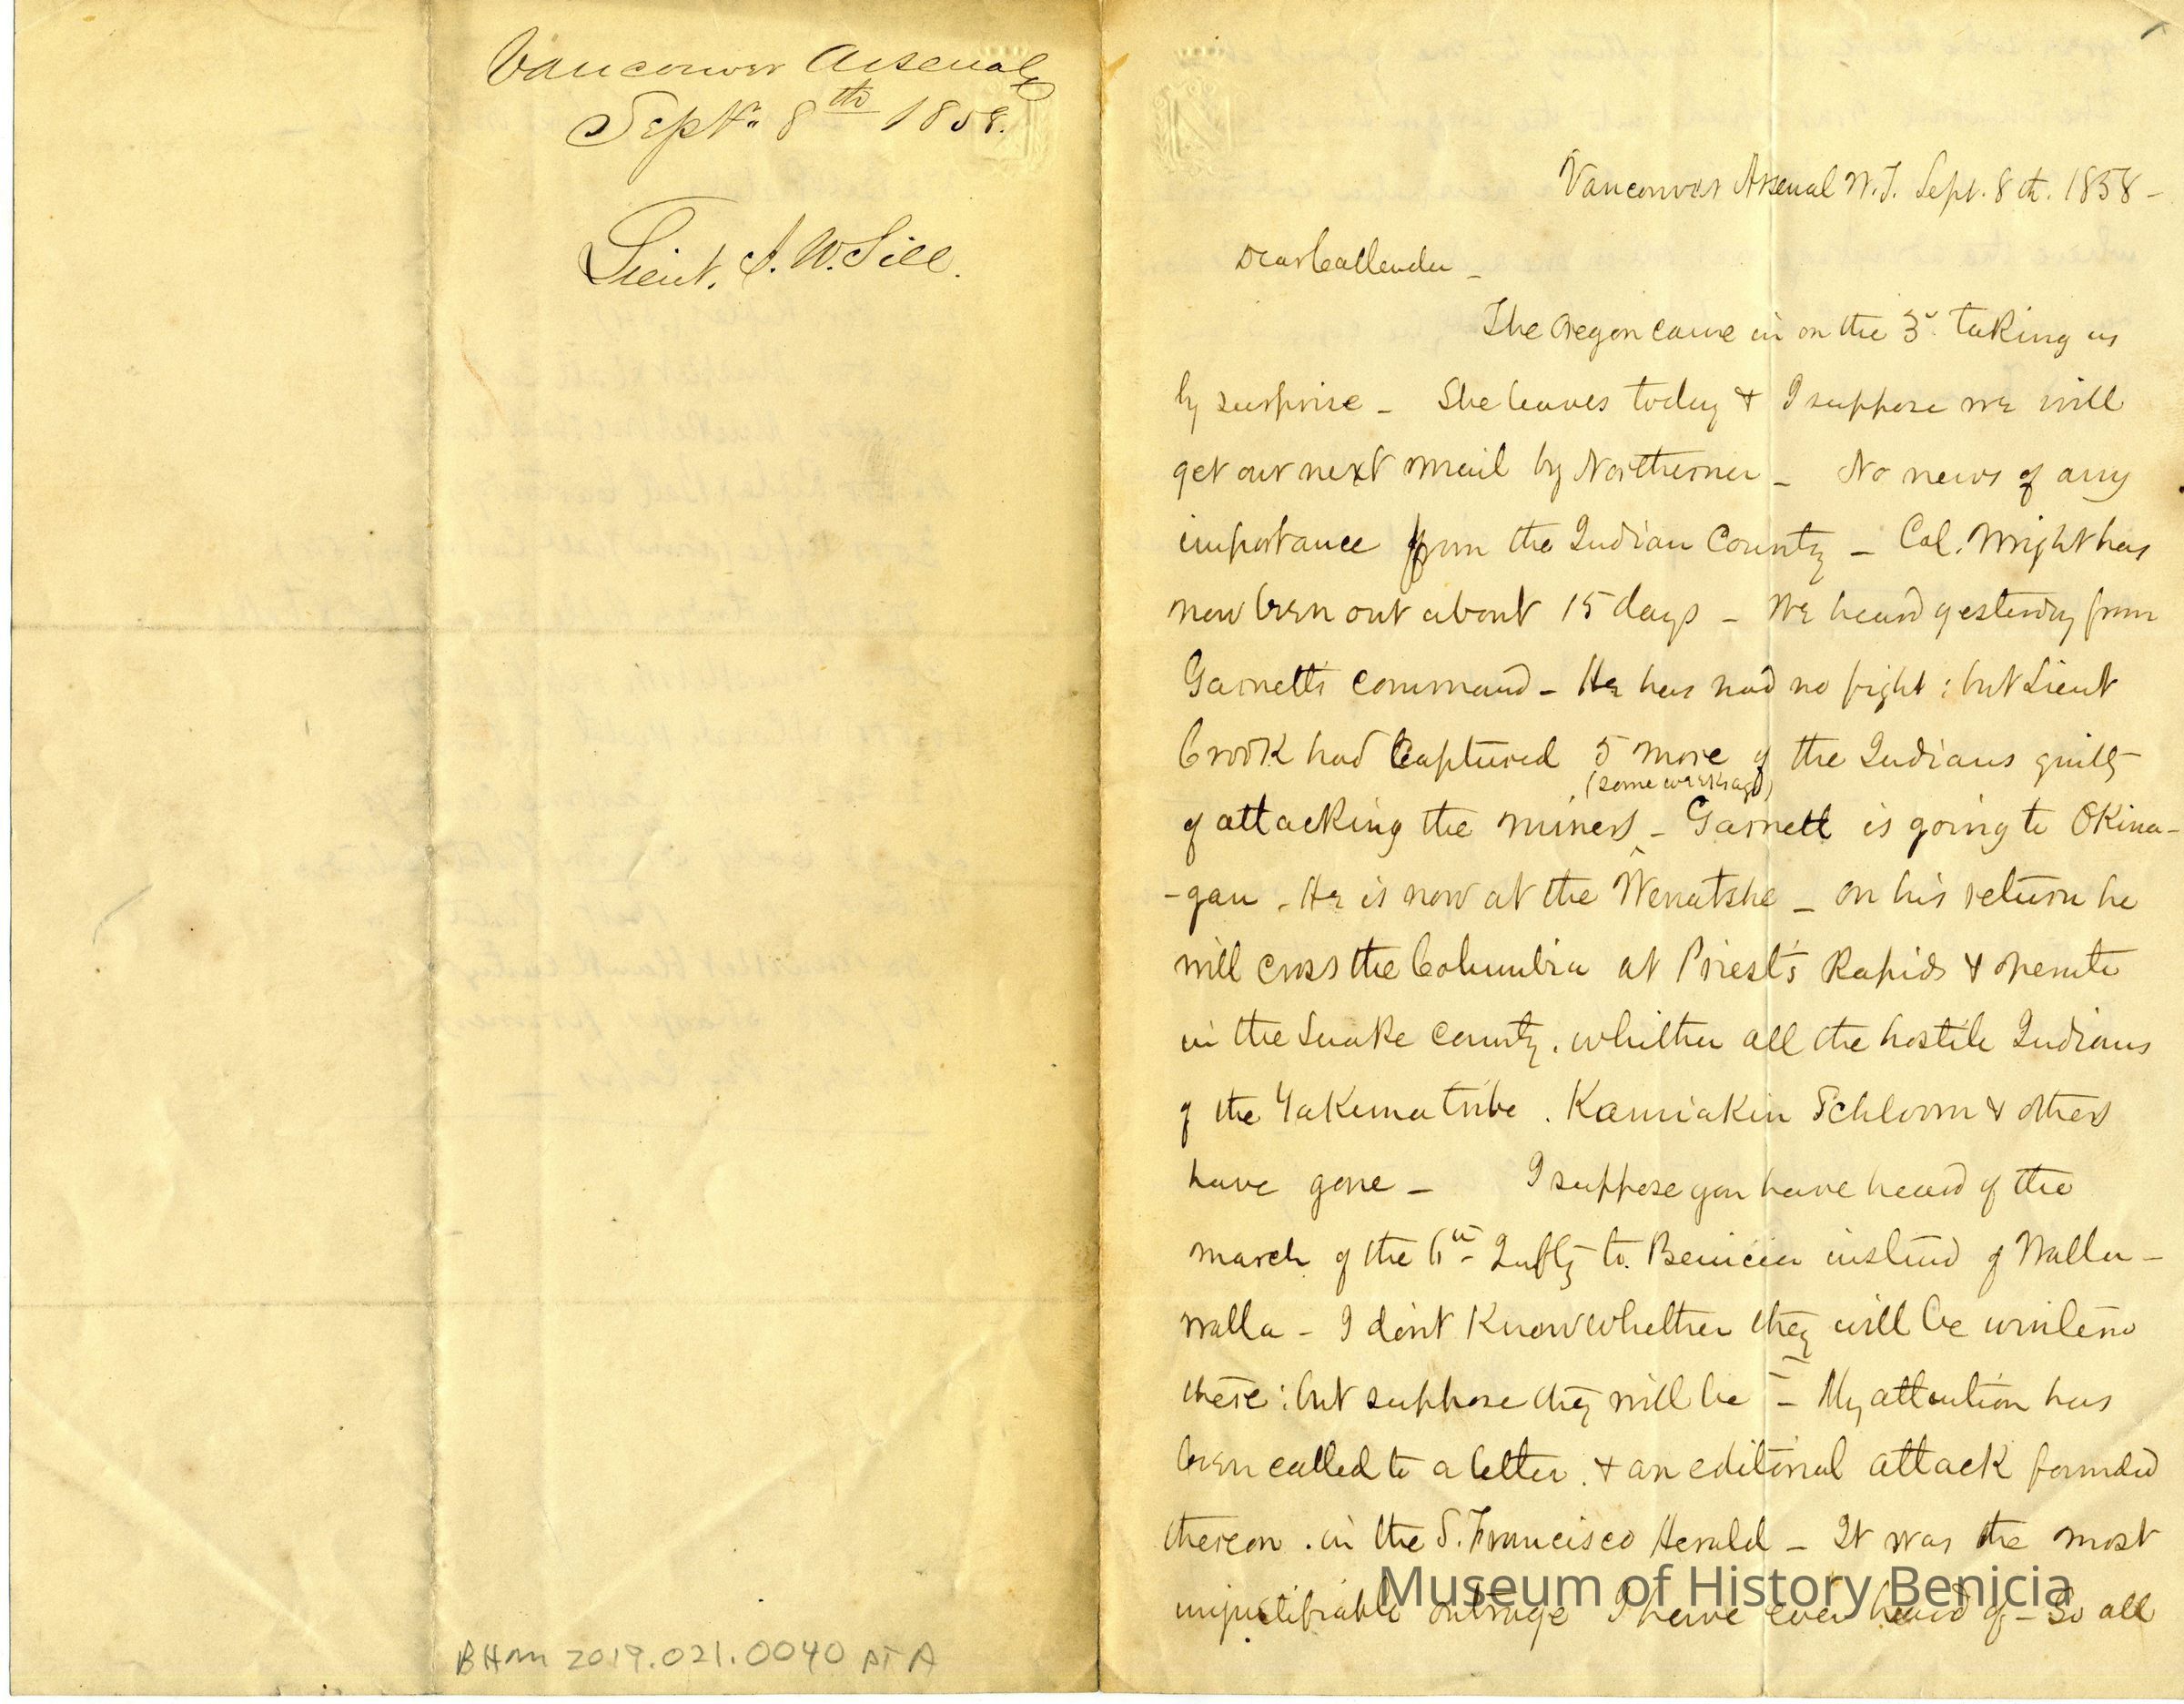 Vancouver Arsenal
Sept. 8th 1858.
Lieut. J. W. Sill.
BHM 2019.021.0040 pt A
Vancouver Arsenal W.T. Sept. 8th. 1858 –
Dear Callender –
The Oregon came in on the 3d taking us
by surprise – She leaves today & I suppose we will
get our next mail by Northerner – No news of any
importance from the Indian County – Col. Wright has
now been out about 15 days – We heard yesterday from
Garnett's command – He has had no fight; but Lieut
Crook had Captured 5 more of the Indians guilty
(some weeks ago)
of attacking the miners – Garnett is going to Okina-
-gan. He is now at the Wenatshe – on his return he
will cross the Columbia at Priest's Rapids & operate
in the Snake county. whither all the hostile Indians
of the Yakima tribe. Kamiakin Schloom & others
have gone – I suppose you have heard of the
march of the 6th Infty to Benicia instead of Walla-
walla – I don't Know whether they will be wintered
there; but suppose they will be – My attention has
been called to a letter. & an editorial attack founded
thereon. in the S. Francisco Herald – It was the most
unjustifiable outrage I have ever heard of – So all
Museum of History Benicia